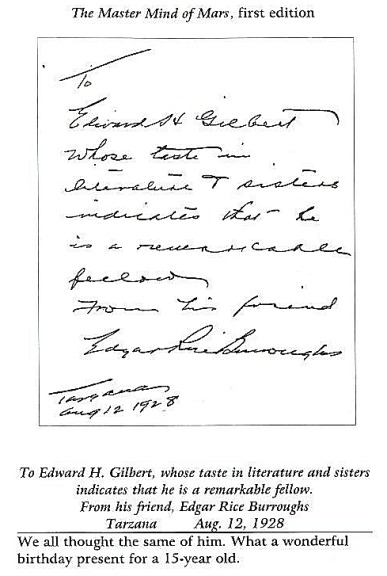 The Master Mind of Mars, first edition
To
Edward H Gilbert
Whose taste in
literature & sisters
indicates that he
is a remarkable
fellow
From his friend
Edgar Rice Burroughs
Tarzana
Aug 12 1928
To Edward H. Gilbert, whose taste in literature and sisters
indicates that he is a remarkable fellow.
From his friend, Edgar Rice Burroughs
Tarzana Aug. 12, 1928
We all thought the same of him. What a wonderful
birthday present for a 15-year old.